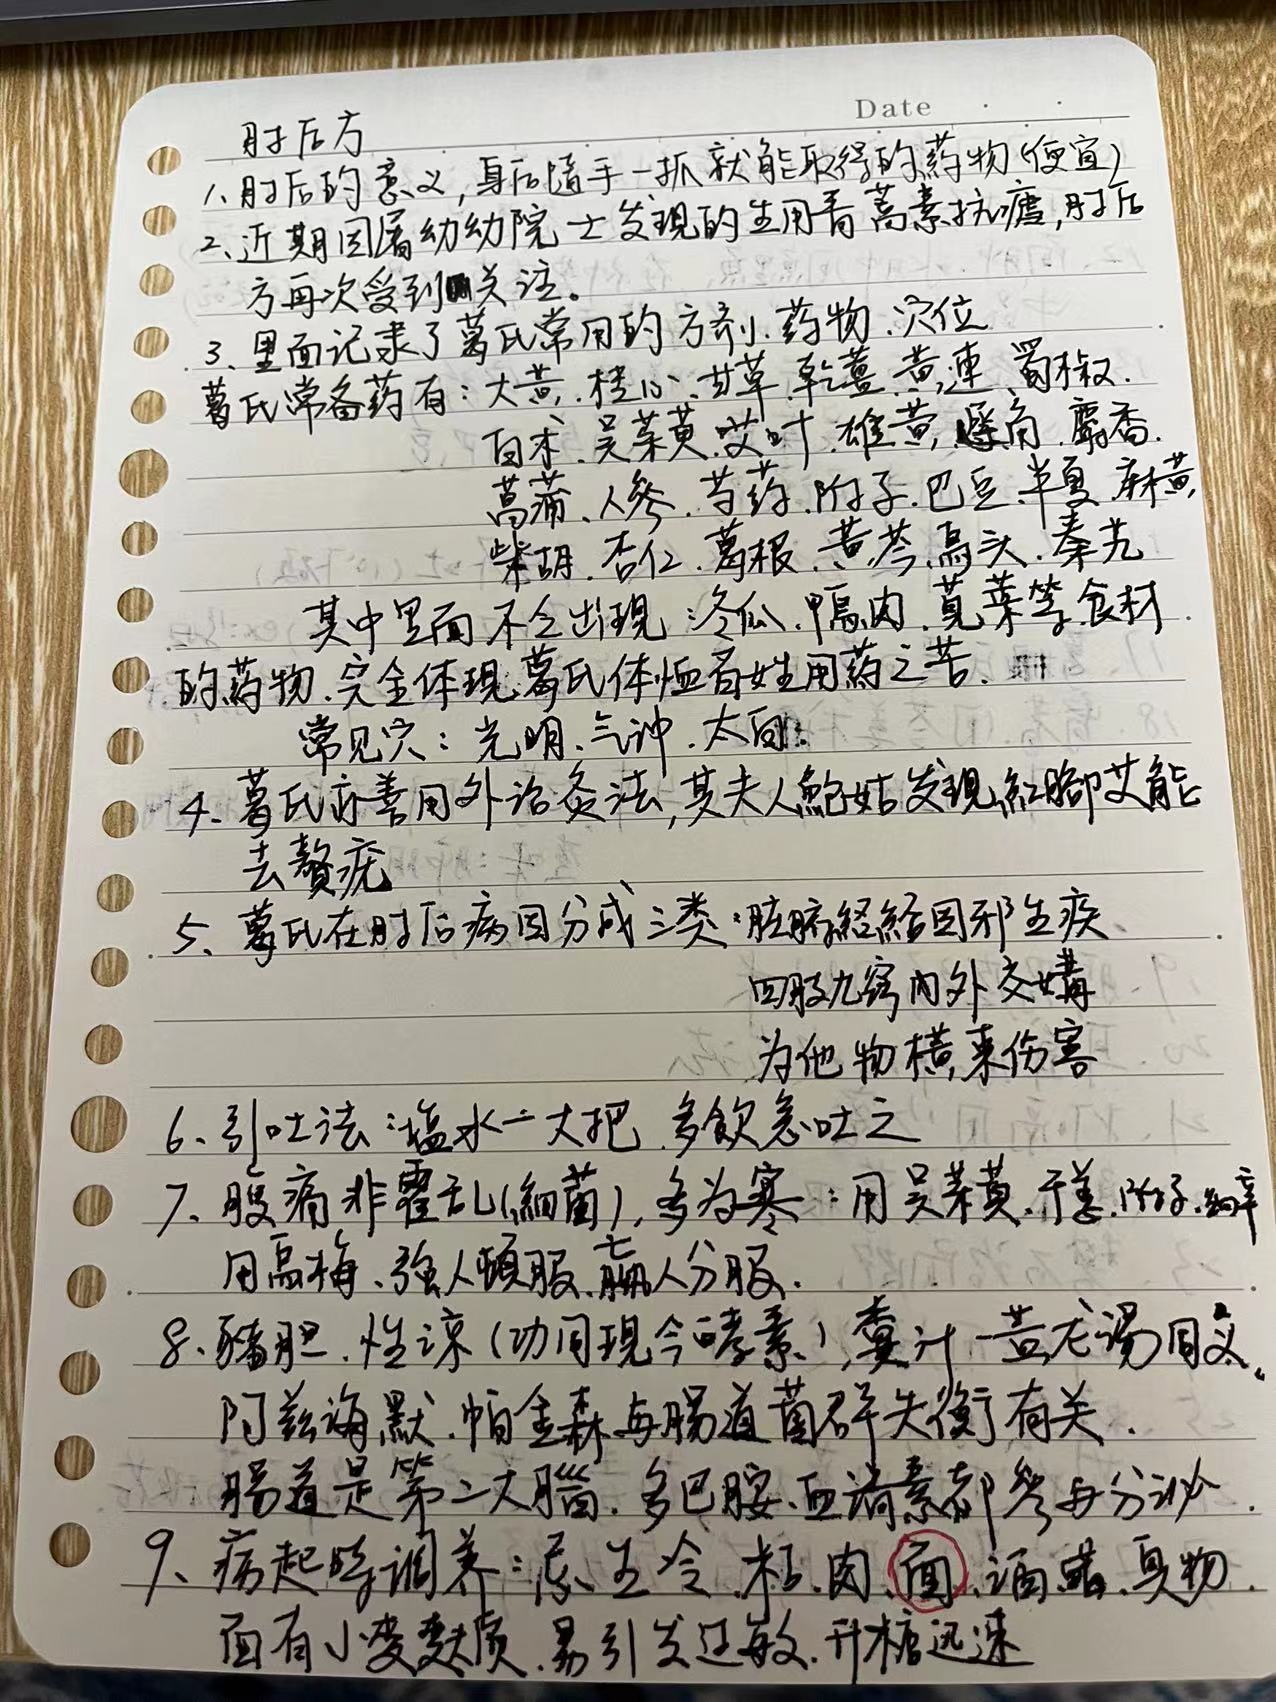 Date
肘后方
1、肘后的意义，身后随手一抓就能取得的药物（便宜）
2、近期因屠幼幼院士发现的生用青蒿素抗瘧，肘后
方再次受到关注。
3、里面记录了葛氏常用的方剂、药物、穴位
葛氏常备药有：大黄、桂心、甘草、乾薑、黄連、蜀椒、
白术、吴茱萸、艾叶、雄黄、犀角、麝香、
菖蒲、人参、芍药、附子、巴豆、半夏、麻黄、
柴胡、杏仁、葛根、黄芩、烏头、秦艽
其中里面不乏出现：冬瓜、鴨肉、莧菜等食材
的药物、完全体现葛氏体恤百姓用药之苦、
常见穴：光明、气冲、太白。
4、葛氏亦善用外治灸法，其夫人鲍姑发现红腳艾能
去贅疣
5、葛氏在肘后病因分成三类：脏腑经络因邪生疾
四肢九窍内外交媾
为他物横来伤害
6、引吐法：塩水一大把、多飲急吐之
7、腹痛非霍乱（細菌），多为寒：用吴茱萸、干姜、附子、細辛
用烏梅、强人頓服、羸人分服、
8、豬胆、性凉（功同现今酵素），粪汁－黄龙湯同义。
阿兹海默、帕金森与腸道菌群失衡有关、
腸道是第二大腦、多巴胺、血清素都参与分泌、
9、病起時调养：忌生冷、粘、肉、面、酒、醋、臭物、
面有小麦麩质、易引发过敏、升糖迅速